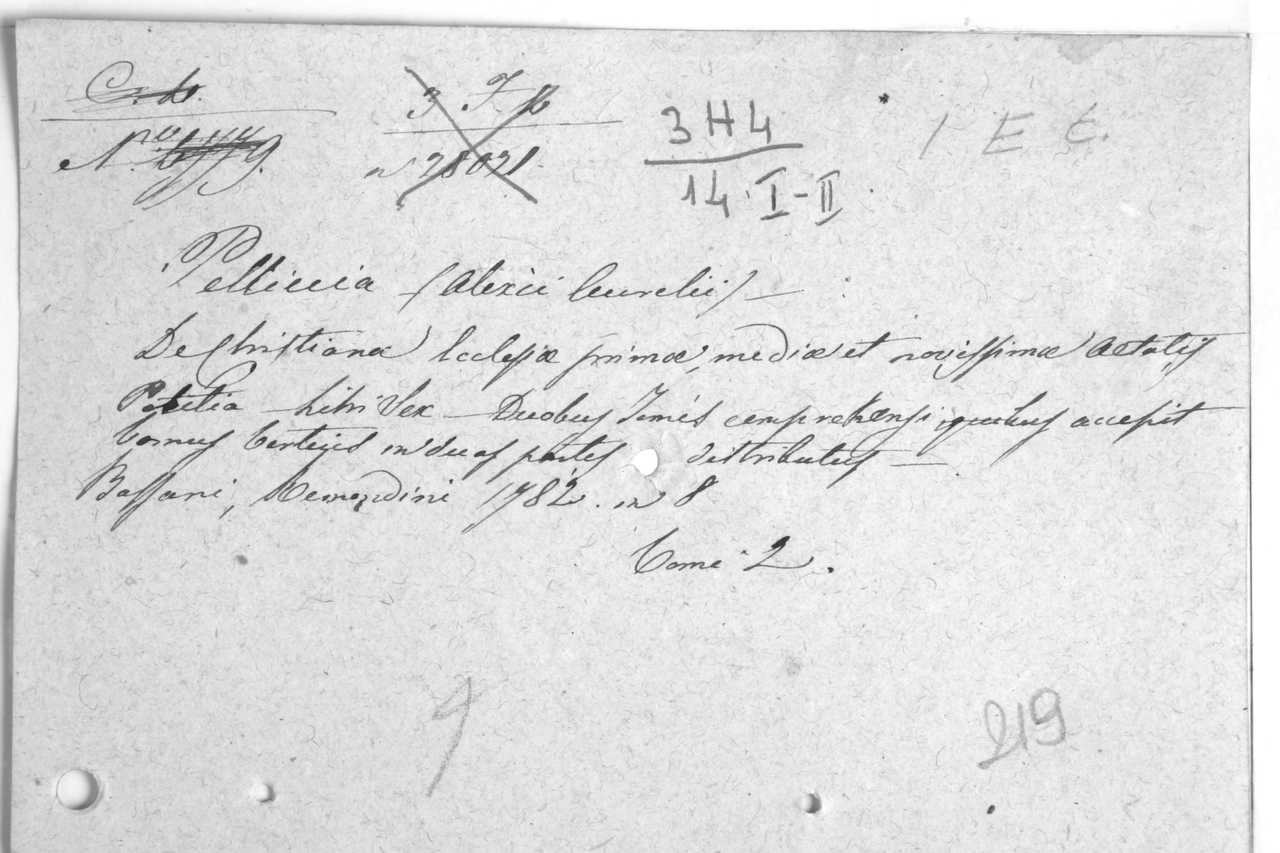 3 F p
n 28021
3 H 4
14. I-II
I E E.
Pelliccia (Alexii Aurelii) —
De Christianæ Ecclesiæ primæ, mediæ et novissimæ Aetatis
Politia — Libri Sex — Duobus Tomis comprehensi quibus accepit
tomus tertius in duas partes distributus —
Bassani, Remondini 1782. in 8
Tome 2.
9
219